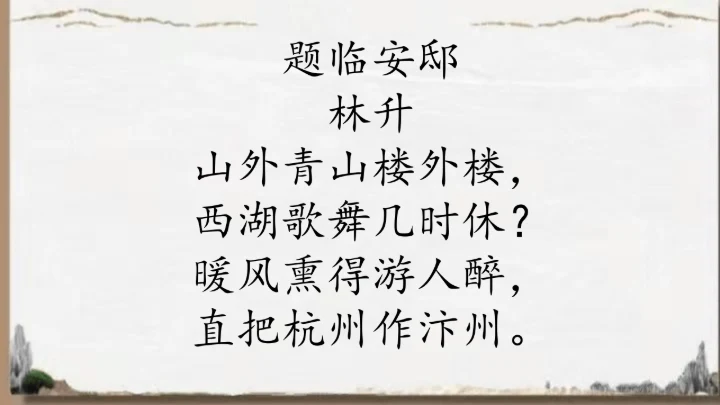 题临安邸
林升
山外青山楼外楼，
西湖歌舞几时休？
暖风熏得游人醉，
直把杭州作汴州。